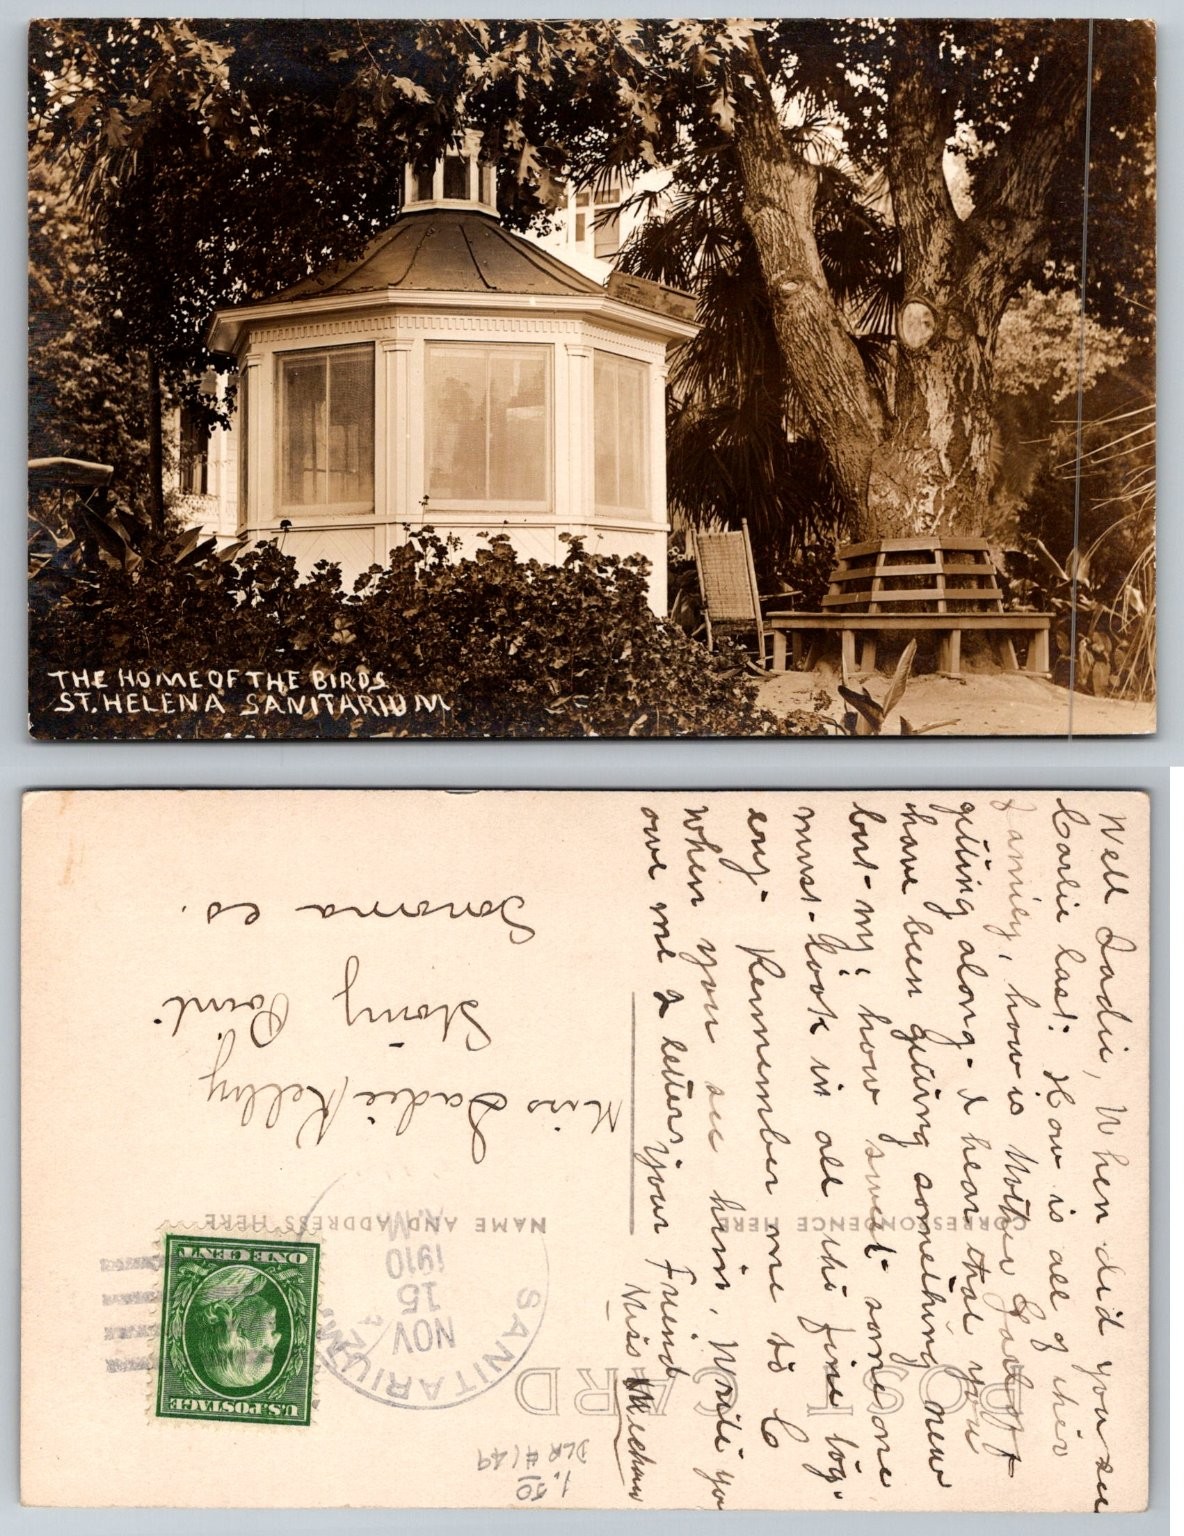 THE HOME OF THE BIRDS
ST. HELENA SANITARIUM
Well Sadie, When did you see
Carlie last. How is all of their
Family, how is Mother
getting along. I hear that you
have been getting something new
but my, how sweet some one
must look in all the fine tog-
ery. Remember me to C
when you see him. Write you
owe me 2 letters your Friend
Miss Meehan
POST CARD
CORRESPONDENCE HERE
NAME AND ADDRESS HERE
SANITARIUM
NOV
15
1910
A.M.
U.S. POSTAGE
ONE CENT
Miss Sadie Kelley
Stony Point
Sonoma co.
1.50
DLR #149